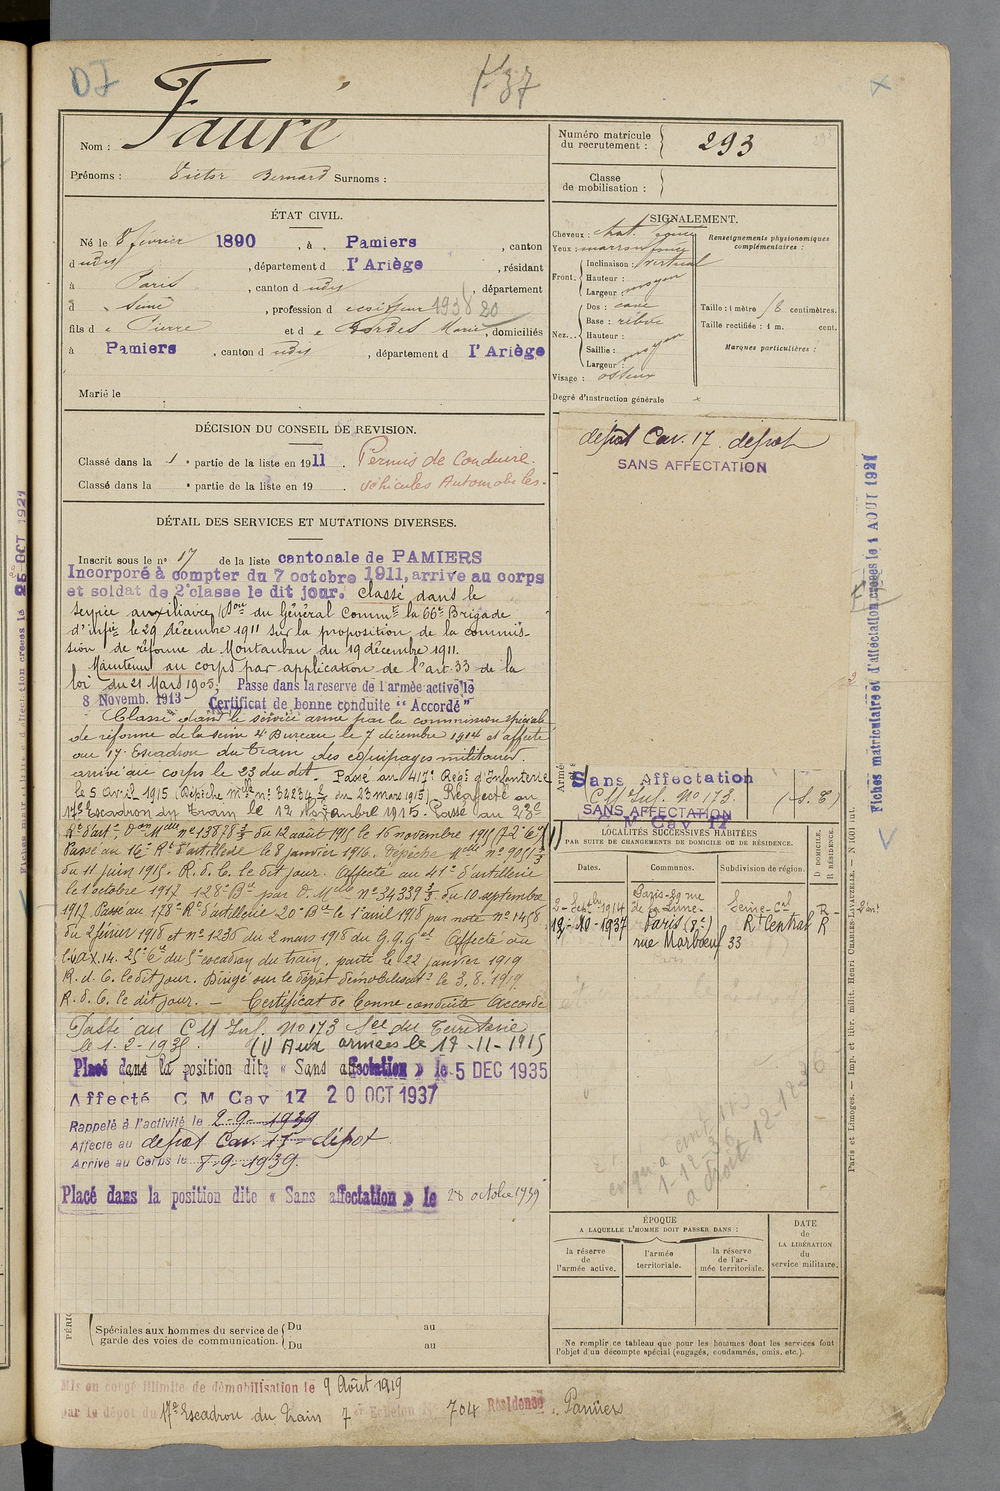 DJ
F 37
Nom : Fauré
Prénoms : Victor Bernard Surnoms :
Numéro matricule du recrutement : 293
Classe de mobilisation :
ÉTAT CIVIL.
Né le 8 février 1890, à Pamiers, canton
dudit, département d l'Ariège, résidant
à Paris, canton dudit, département
d Seine, profession d coiffeur 1938 20
fils de Pierre et de Bordes Marie, domiciliés
à Pamiers, canton dudit, département d l'Ariège
Marié le
SIGNALEMENT.
Cheveux : chat. foncé
Yeux : marron foncé
Front. Inclinaison : vertical
Hauteur :
Largeur : moyen
Nez. Dos : cave
Base : relevé
Hauteur :
Saillie :
Largeur : moyen
Visage : osseux
Renseignements physionomiques complémentaires :
Taille : 1 mètre 8 centimètres.
Taille rectifiée : 1 m. cent.
Marques particulières :
Degré d'instruction générale
DÉCISION DU CONSEIL DE REVISION.
Classé dans la 1e partie de la liste en 1911. Permis de Conduire.
Classé dans la e partie de la liste en 19 . véhicules Automobiles-
DÉTAIL DES SERVICES ET MUTATIONS DIVERSES.
Inscrit sous le no 17 de la liste cantonale de PAMIERS
Incorporé à compter du 7 octobre 1911, arrive au corps
et soldat de 2e classe le dit jour. Classé dans le
service auxiliaire (Don du Général Commt la 66e Brigade
d'infie le 29 décembre 1911 sur la proposition de la commis-
sion de réforme de Montauban du 19 décembre 1911.
Maintenu au corps par application de l'art. 33 de la
loi du 21 Mars 1905; Passe dans la reserve de l'armée active le
8 Novemb. 1913 Certificat de bonne conduite "Accordé"
Classé dans le service armé par la commission spéciale
de réforme de la seine 4e Bureau le 7 décembre 1914 et affecté
au 17e Escadron du train des équipages militaires.
arrivé au corps le 23 du dit. Passé au 417e Régt d'Infanterie
le 5 avril 1915 (Dépêche Mlle no 34234 du 28 mars 1915) Réaffecté au
17e Escadron du Train le 12 Novembre 1915. Passé au 23e
Rt d'art. Don Mlle no 13828 3/3 du 12 août 1915 le 16 novembre 1915 (72e Bie)
Passé au 16e Rt d'artillerie le 8 janvier 1916. Dépêche Melle no 9051 3/3
du 11 juin 1915. R. d. C. le dit jour. Affecté au 41e d'artillerie
le 1 octobre 1917 128e Bie par D. Melle no 34339 3/3 du 10 septembre
1917. Passé au 178e Rt d'artillerie 20e Bie le 1er avril 1918 par note no 1458
du 2 février 1918 et no 1236 du 2 mars 1918 du G.Q.Gal Affecté au
25e Cie du 5e escadron du train, parti le 22 janvier 1919
R. d. C. le dit jour. Dirigé sur le dépôt démobilisatr le 3.8.1919
R. d. C. le dit jour. — Certificat de bonne conduite Accordé
Passé au C M Inf. No 173 See du Territoire
le 1-2-1935. (V Aux armées le 17-11-1915
Placé dans la position dite « Sans affectation » le 5 DEC 1935
Affecté C M Cav 17 20 OCT 1937
Rappelé à l'activité le 2-9-1939
Affecté au dépôt Cav. 17 dépôt
Arrivé au Corps le 7-9-1939.
Placé dans la position dite « Sans affectation » le 28 octobre 1939
PÉRIO
Spéciales aux hommes du service de garde des voies de communication.
Du au
Du au
dépôt Cav. 17 dépôt
SANS AFFECTATION
Armé
Sans Affectation
C M Inf. No 173. (S.T)
SANS AFFECTATION
C M Cav 17
LOCALITÉS SUCCESSIVES HABITÉES
PAR SUITE DE CHANGEMENTS DE DOMICILE OU DE RÉSIDENCE.
Dates. Communes. Subdivision de région. D DOMICILE. R RÉSIDENCE.
2-Septbre-1914 Paris-29 rue de la Lune- Seine-Cal R
12-10-1937 Paris (8e) Rt Central R
rue Marbœuf 33
1-12-36
12-1236
ÉPOQUE
A LAQUELLE L'HOMME DOIT PASSER DANS :
la réserve de l'armée active.
l'armée territoriale.
la réserve de l'armée territoriale.
DATE de LA LIBÉRATION du service militaire.
Ne remplir ce tableau que pour les hommes dont les services font
l'objet d'un décompte spécial (engagés, condamnés, omis, etc.).
Mis en congé illimité de démobilisation le 9 Août 1919
par le dépôt du 17e Escadron du train 7e Echelon No 704 Résidence : Pamiers
Fiches matriculaire et d'affectation créées le 1 AOUT 1921
Paris et Limoges. — Imp. et libr. milit. Henri CHARLES-LAVAUZELLE. — N 1601 nut.
25 OCT 1921